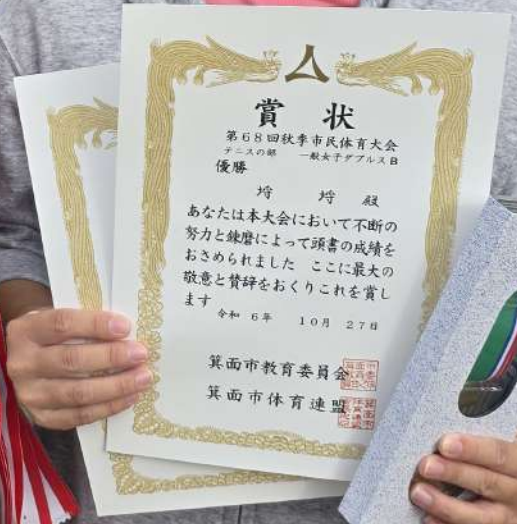 賞状
第68回秋季市民体育大会
テニスの部 一般女子ダブルスB
優勝
殿
あなたは本大会において不断の
努力と錬磨によって頭書の成績を
おさめられました ここに最大の
敬意と賛辞をおくりこれを賞し
ます
令和 6年 10月 27日
箕面市教育委員会
箕面市体育連盟